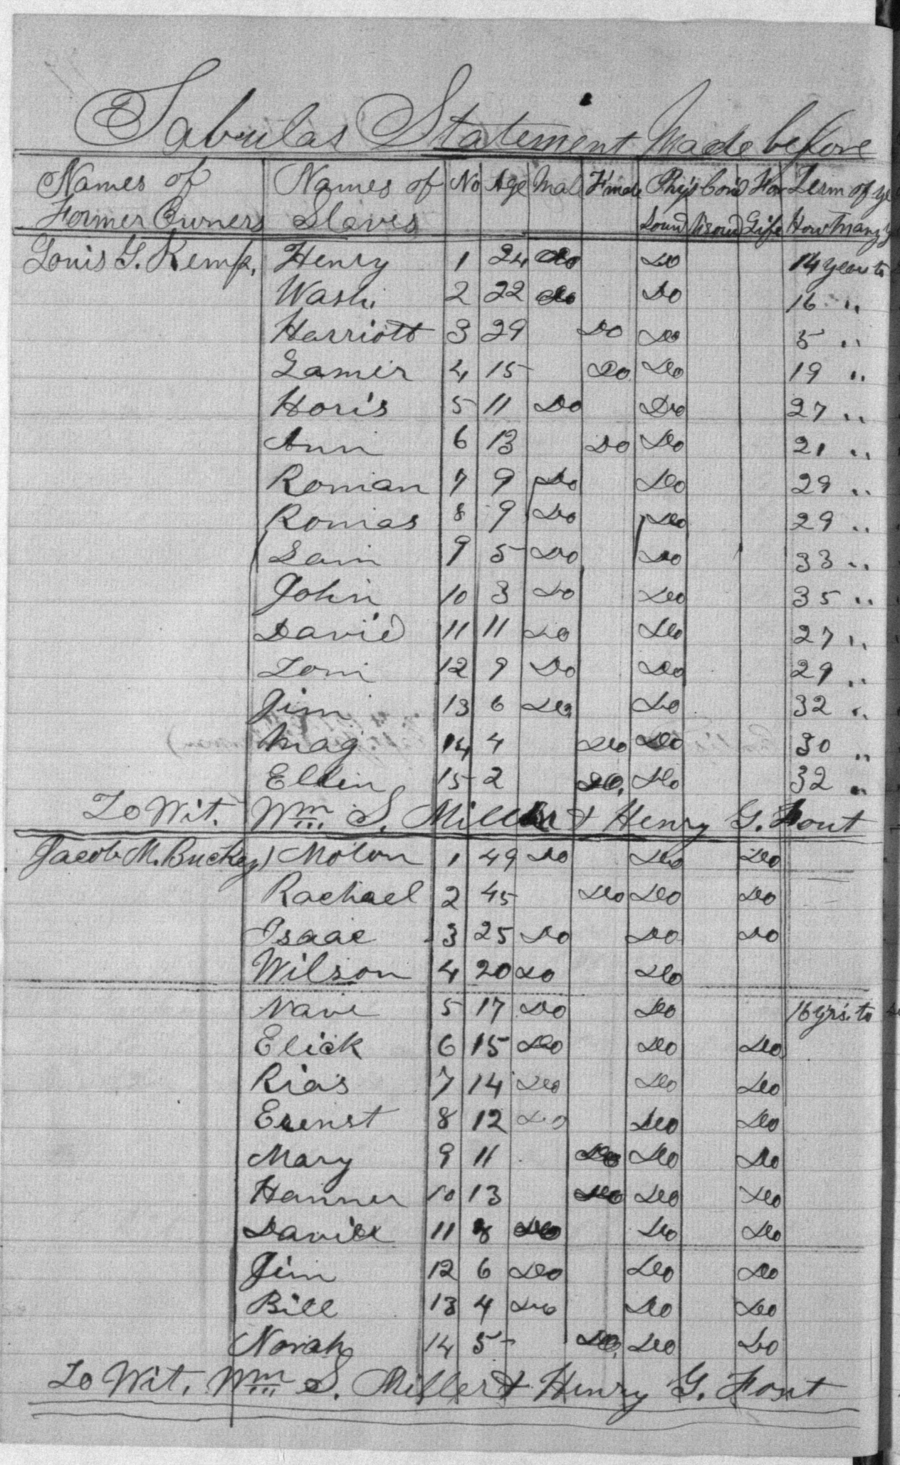 Tabulas Statement Made before
Names of Names of No Age Mal F'male Phys Con'd For Term of ye
Former Owners Slaves Sound Unsound Life How Many y
Louis G. Kemp, Henry 1 24 Do Do 14 years to
Wash. 2 22 Do Do 16 "
Harriott 3 29 Do Do 5 "
Lamir 4 15 Do Do 19 "
Horis 5 11 Do Do 27 "
Ann 6 13 Do Do 21 "
Roman 7 9 Do Do 29 "
Romas 8 9 Do Do 29 "
Sam 9 5 Do Do 33 "
John 10 3 Do Do 35 "
David 11 11 Do Do 27 "
Tom 12 9 Do Do 29 "
Jim 13 6 Do Do 32 "
Mag 14 4 Do Do 30 "
Ellen 15 2 Do. Do 32 "
To Wit. Wm S. Miller & Henry G. Fout
Jacob M. Buckey) Molon 1 49 Do Do Do
Rachael 2 45 Do Do Do
Isaac 3 25 Do Do Do
Wilson 4 20 Do Do
Nave 5 17 Do Do 16 yrs. to
Elick 6 15 Do Do Do
Rias 7 14 Do Do Do
Ernst 8 12 Do Do Do
Mary 9 11 Do Do Do
Hanner 10 13 Do Do Do
David 11 8 Do Do Do
Jim 12 6 Do Do Do
Bill 13 4 Do Do Do
Norah 14 5 Do. Do Do
To Wit. Wm S. Miller & Henry G. Fout